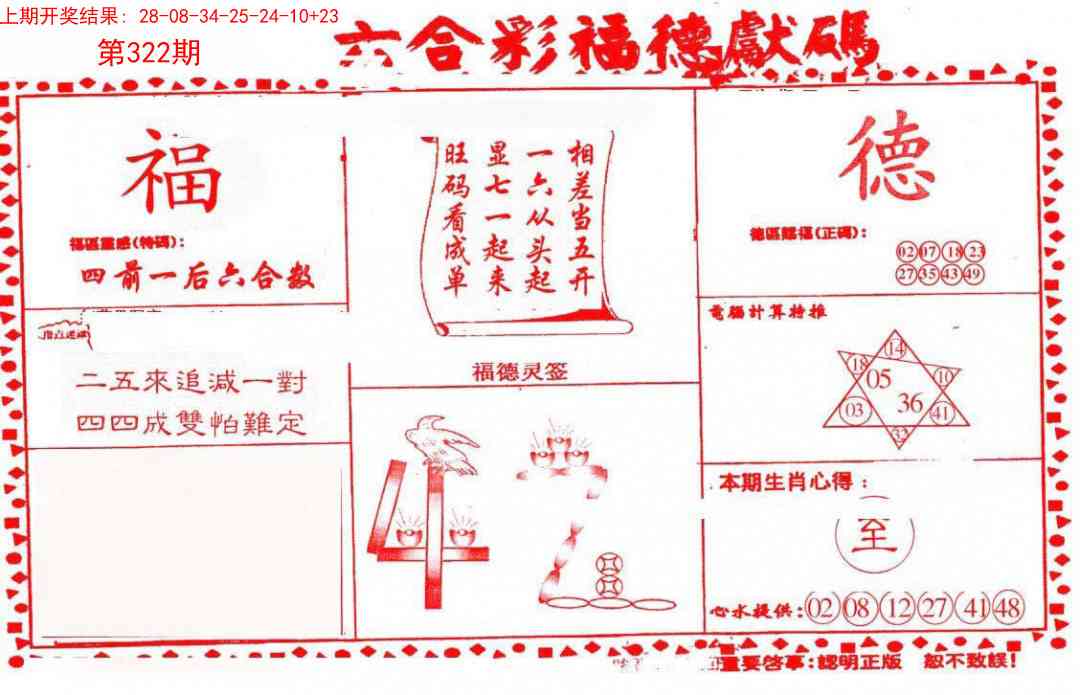 上期开奖结果：28-08-34-25-24-10+23
第322期
六合彩福德獻碼
福
福區靈感(特碼)：
四前一后六合数
二五來追減一對
四四成雙怕難定
相差当五开
一六从头起
显七一起来
旺码看成单
福德灵签
德
德區賜福(正碼)：
02 07 18 23
27 35 43 49
電腦計算特推
14
18 10
05
36
03 41
32
本期生肖心得：
至
心水提供：02 08 12 27 41 48
重要啓事：認明正版 恕不致誤！